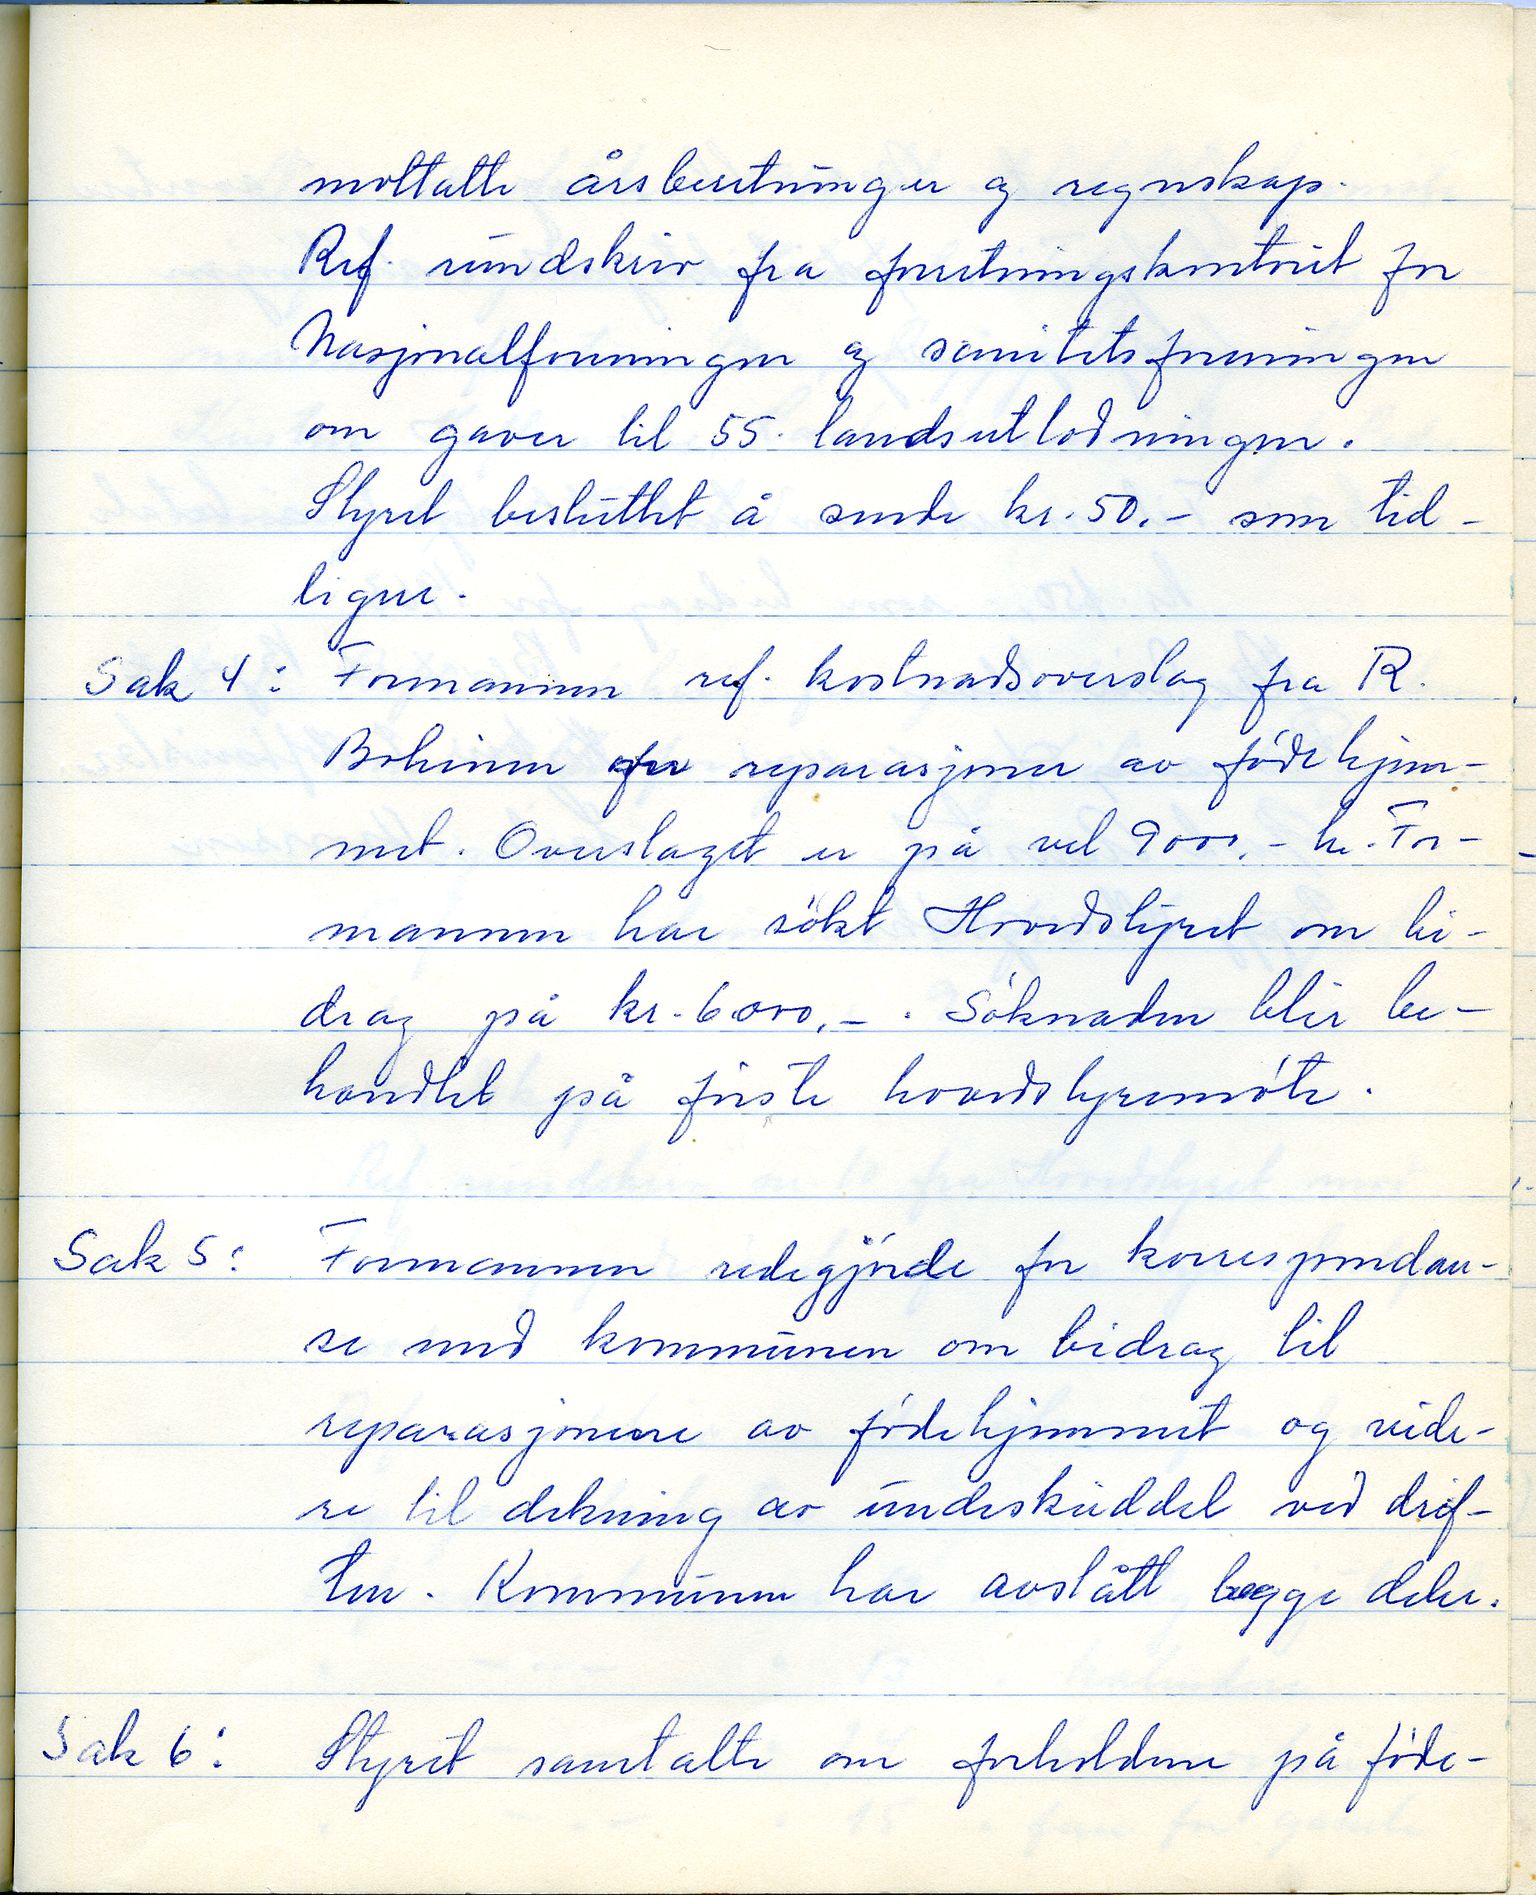 mottatte årsberetninger og regnskap.
Ref. rundskriv fra forretningskontoret for
Nasjonalforeningen og sanitetsforeningen
om gaver til 55. landsutlodningen.
Styret besluttet å sende kr. 50.- som tid-
ligere.
Sak 4: Formannen ref. kostnadsoverslag fra R.
Bohinen for reparasjoner av födehjem-
met. Overslaget er på vel 9000,- kr. For-
mannen har sökt Hovedstyret om bi-
drag på kr. 6.000,-. Söknaden blir be-
handlet på förste hovedstyremöte.
Sak 5: Formannen redegjörde for korrespondan-
se med kommunen om bidrag til
reparasjonene av födehjemmet og vide-
re til dekning av underskuddet ved drif-
ten. Kommunen har avslått begge deler.
Sak 6: Styret samtalte om forholdene på föde-